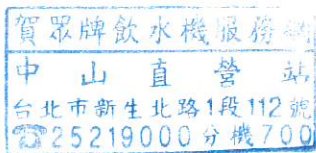 賀眾牌飲水機服務網
中山直營站
台北市新生北路1段112號
☎25219000分機700